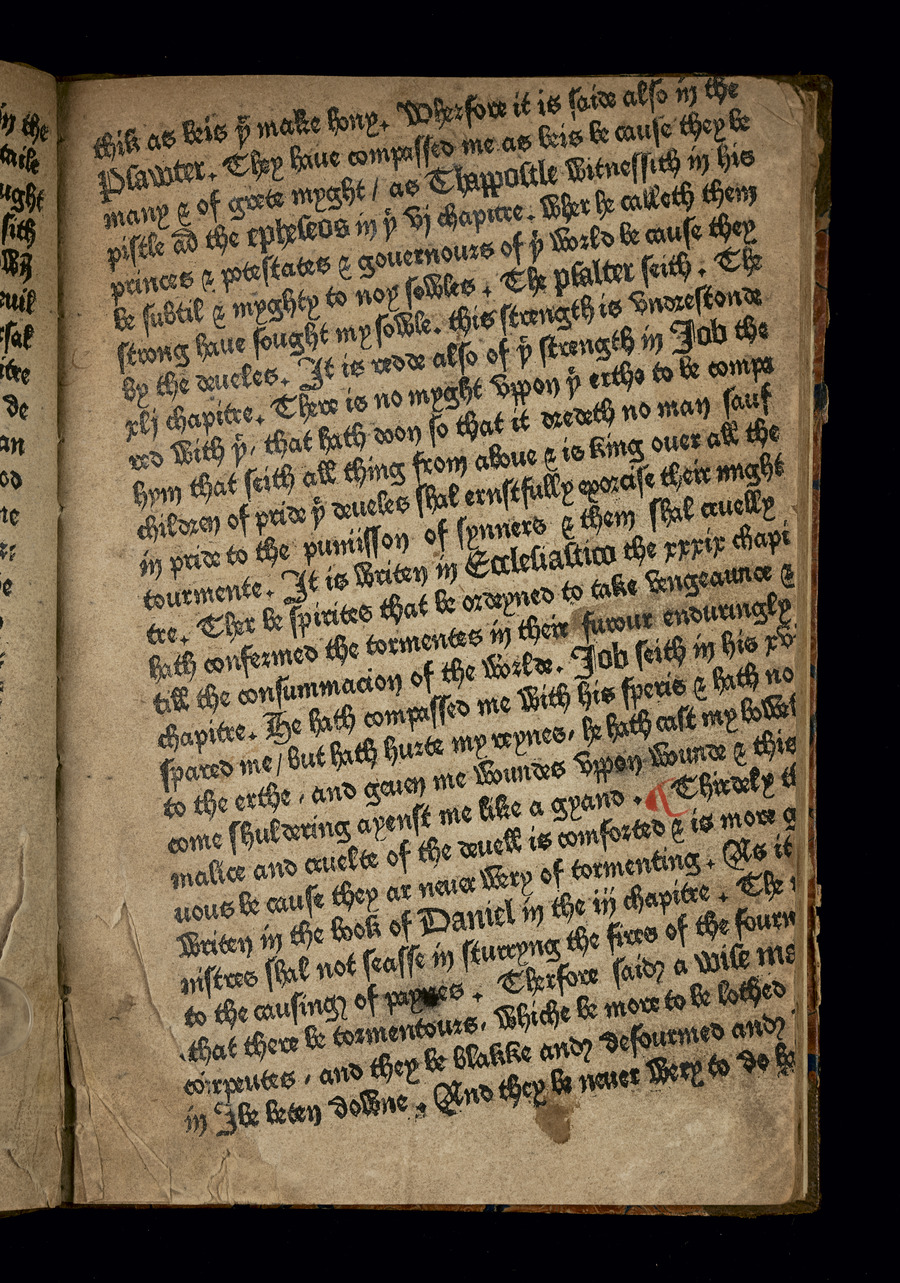 in the
taile
ught
sith
euil
rsal
itre
de
an
od
ne
thik as beis yͭ make hony. Wherfore it is saide also in the
Psawter. They haue compassed me as beis be cause they be
many & of grete myght / as Thappostle witnessith in his
pistle ad̄ the epheseos in yͤ vj chapitre. Wher he calleth them
princes & potestates & gouernours of yͤ world be cause they
be subtil & myghty to noy sowles. The psalter seith. The
strong haue sought my sowle. this strength is vndrestonde
by the deueles. It is redde also of yͤ strength in Job the
xlj chapitre. There is no myght vppon yͤ erthe to be compa
red with yͭ, that hath doon so that it dredeth no man sauf
hym that seith all thing from aboue & is king ouer all the
children of pride yͤ deueles shal ernstfully exorcise their might
in pride to the punission of synners & them shal cruelly
tourmente. It is writen in Ecclesiastico the xxxix chapi
tre. Ther be spirites that be ordeyned to take vengeaunce &
hath confermed the tormentes in their furour enduringly
till the consummacion of the worlde. Job seith in his xv
chapitre. He hath compassed me with his speris & hath no
spared me / but hath hurte my reynes, he hath cast my bowel
to the erthe, and geuen me woundes vppon wounde & this
come shuldering ayenst me like a gyand. ¶ Thirdely th
malice and cruelte of the deuell is comforted & is more g
uous be cause they ar neuer wery of tormenting. As it
writen in the book of Daniel in the iij chapitre. The
nistres shal not seasse in sturryng the fires of the fourn
to the causing of paynes. Therfore said a wise ma
that there be tormentours, whiche be more to be lothed
serpentes, and they be blakke and defourmed and
in be beten downe. And they be neuer wery to do